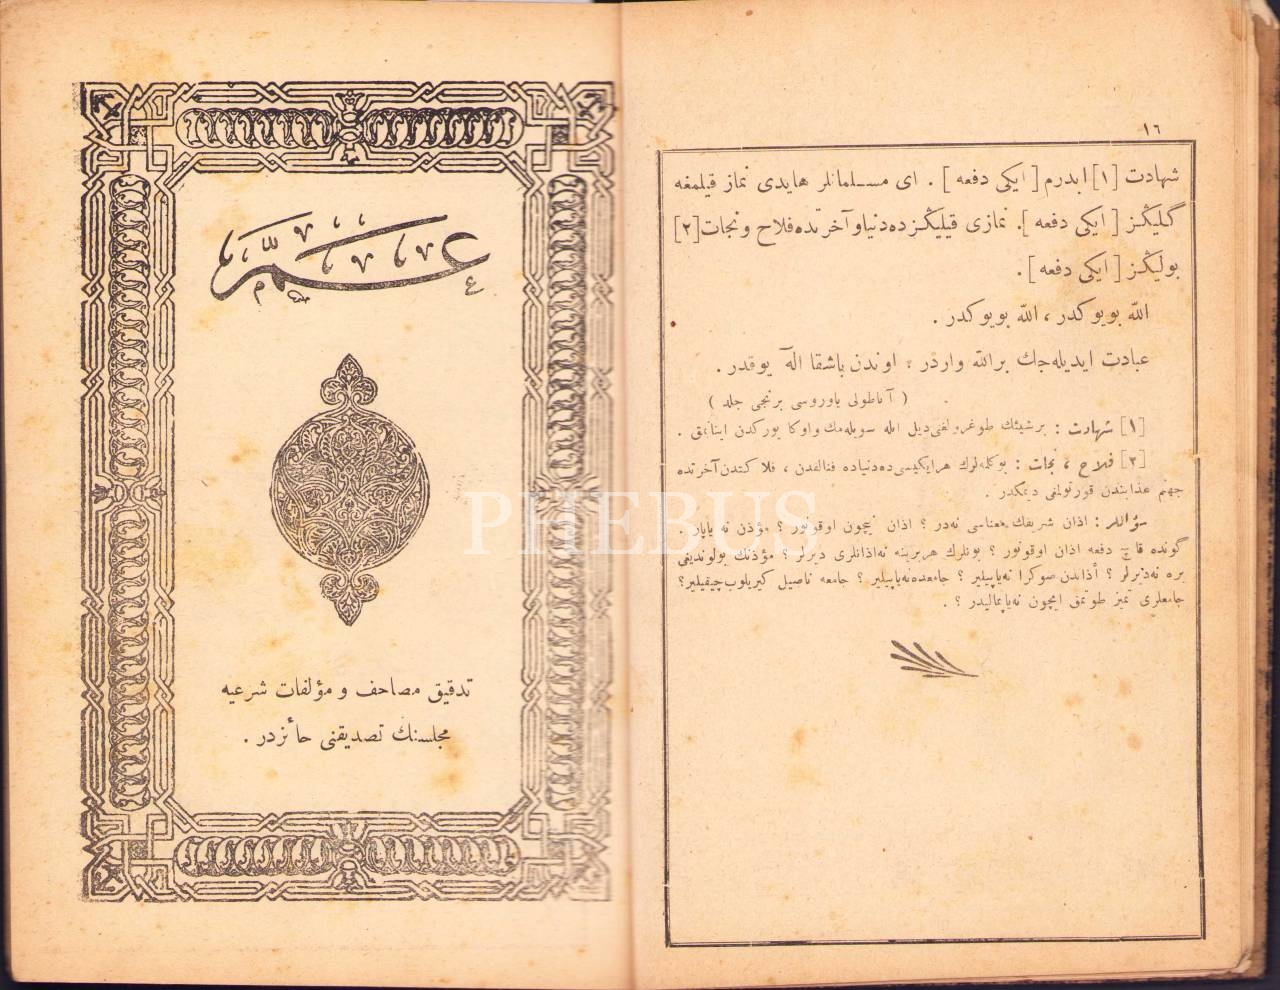 ١٦
شهادت [١] ايدرم [ ايكی دفعه ] . ای مسلمانلر هايدی نماز قيلمغه
گليڭز [ ايكی دفعه ] . نمازی قيليڭز ده دنيا و آخرتده فلاح و نجات [٢]
بوليڭز [ ايكی دفعه ] .
الله بويوكدر ، الله بويوكدر .
عبادت ايديله‌جك بر الله واردر ؛ اوندن باشقا اله يوقدر .
( آناطولی ياوروسی برنجی جلد )
[١] شهادت : برشيئك طوغرولغنی ديل ايله سويله‌مك و اوكا يوركدن اينانمق .
[٢] فلاح ، نجات : بو كله‌لرك هر ايكيسی ده دنياده فنالقدن ، فلاكتدن آخرتده
جهنم عذابندن قورتولمق ديمكدر .
سؤاللر : اذان شريفك معناسی نه‌در ؟ اذان نيچون اوقونور ؟ مؤذن نه ياپار .
گونده قاچ دفعه اذان اوقونور ؟ بونلرك هر برينه نه اذانلری ديرلر ؟ مؤذنك بولونديغی
يره نه ديرلر ؟ أذاندن صوكرا نه ياپيلير ؟ جامعده نه ياپيلير ؟ جامعه ناصيل گيريلوب چيقيلير ؟
جامعلری تميز طوتمق ايچون نه ياپماليدر ؟ .
عمّ
تدقيق مصاحف و مؤلفات شرعيه
مجلسنك تصديقنی حائزدر .
PHEBUS